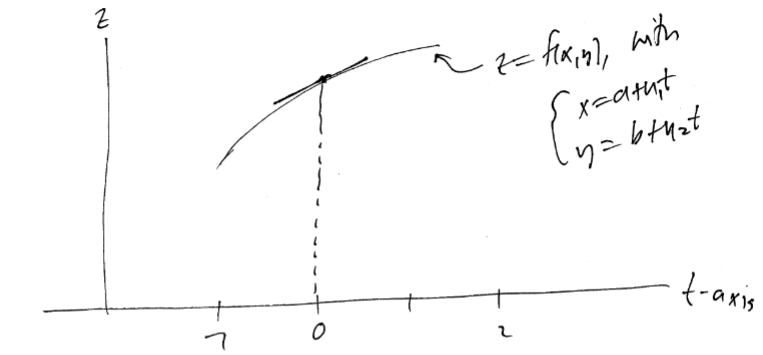 z
z = f(x,y), with
{ x = a+u₁t
y = b+u₂t
t-axis
-1 0 2